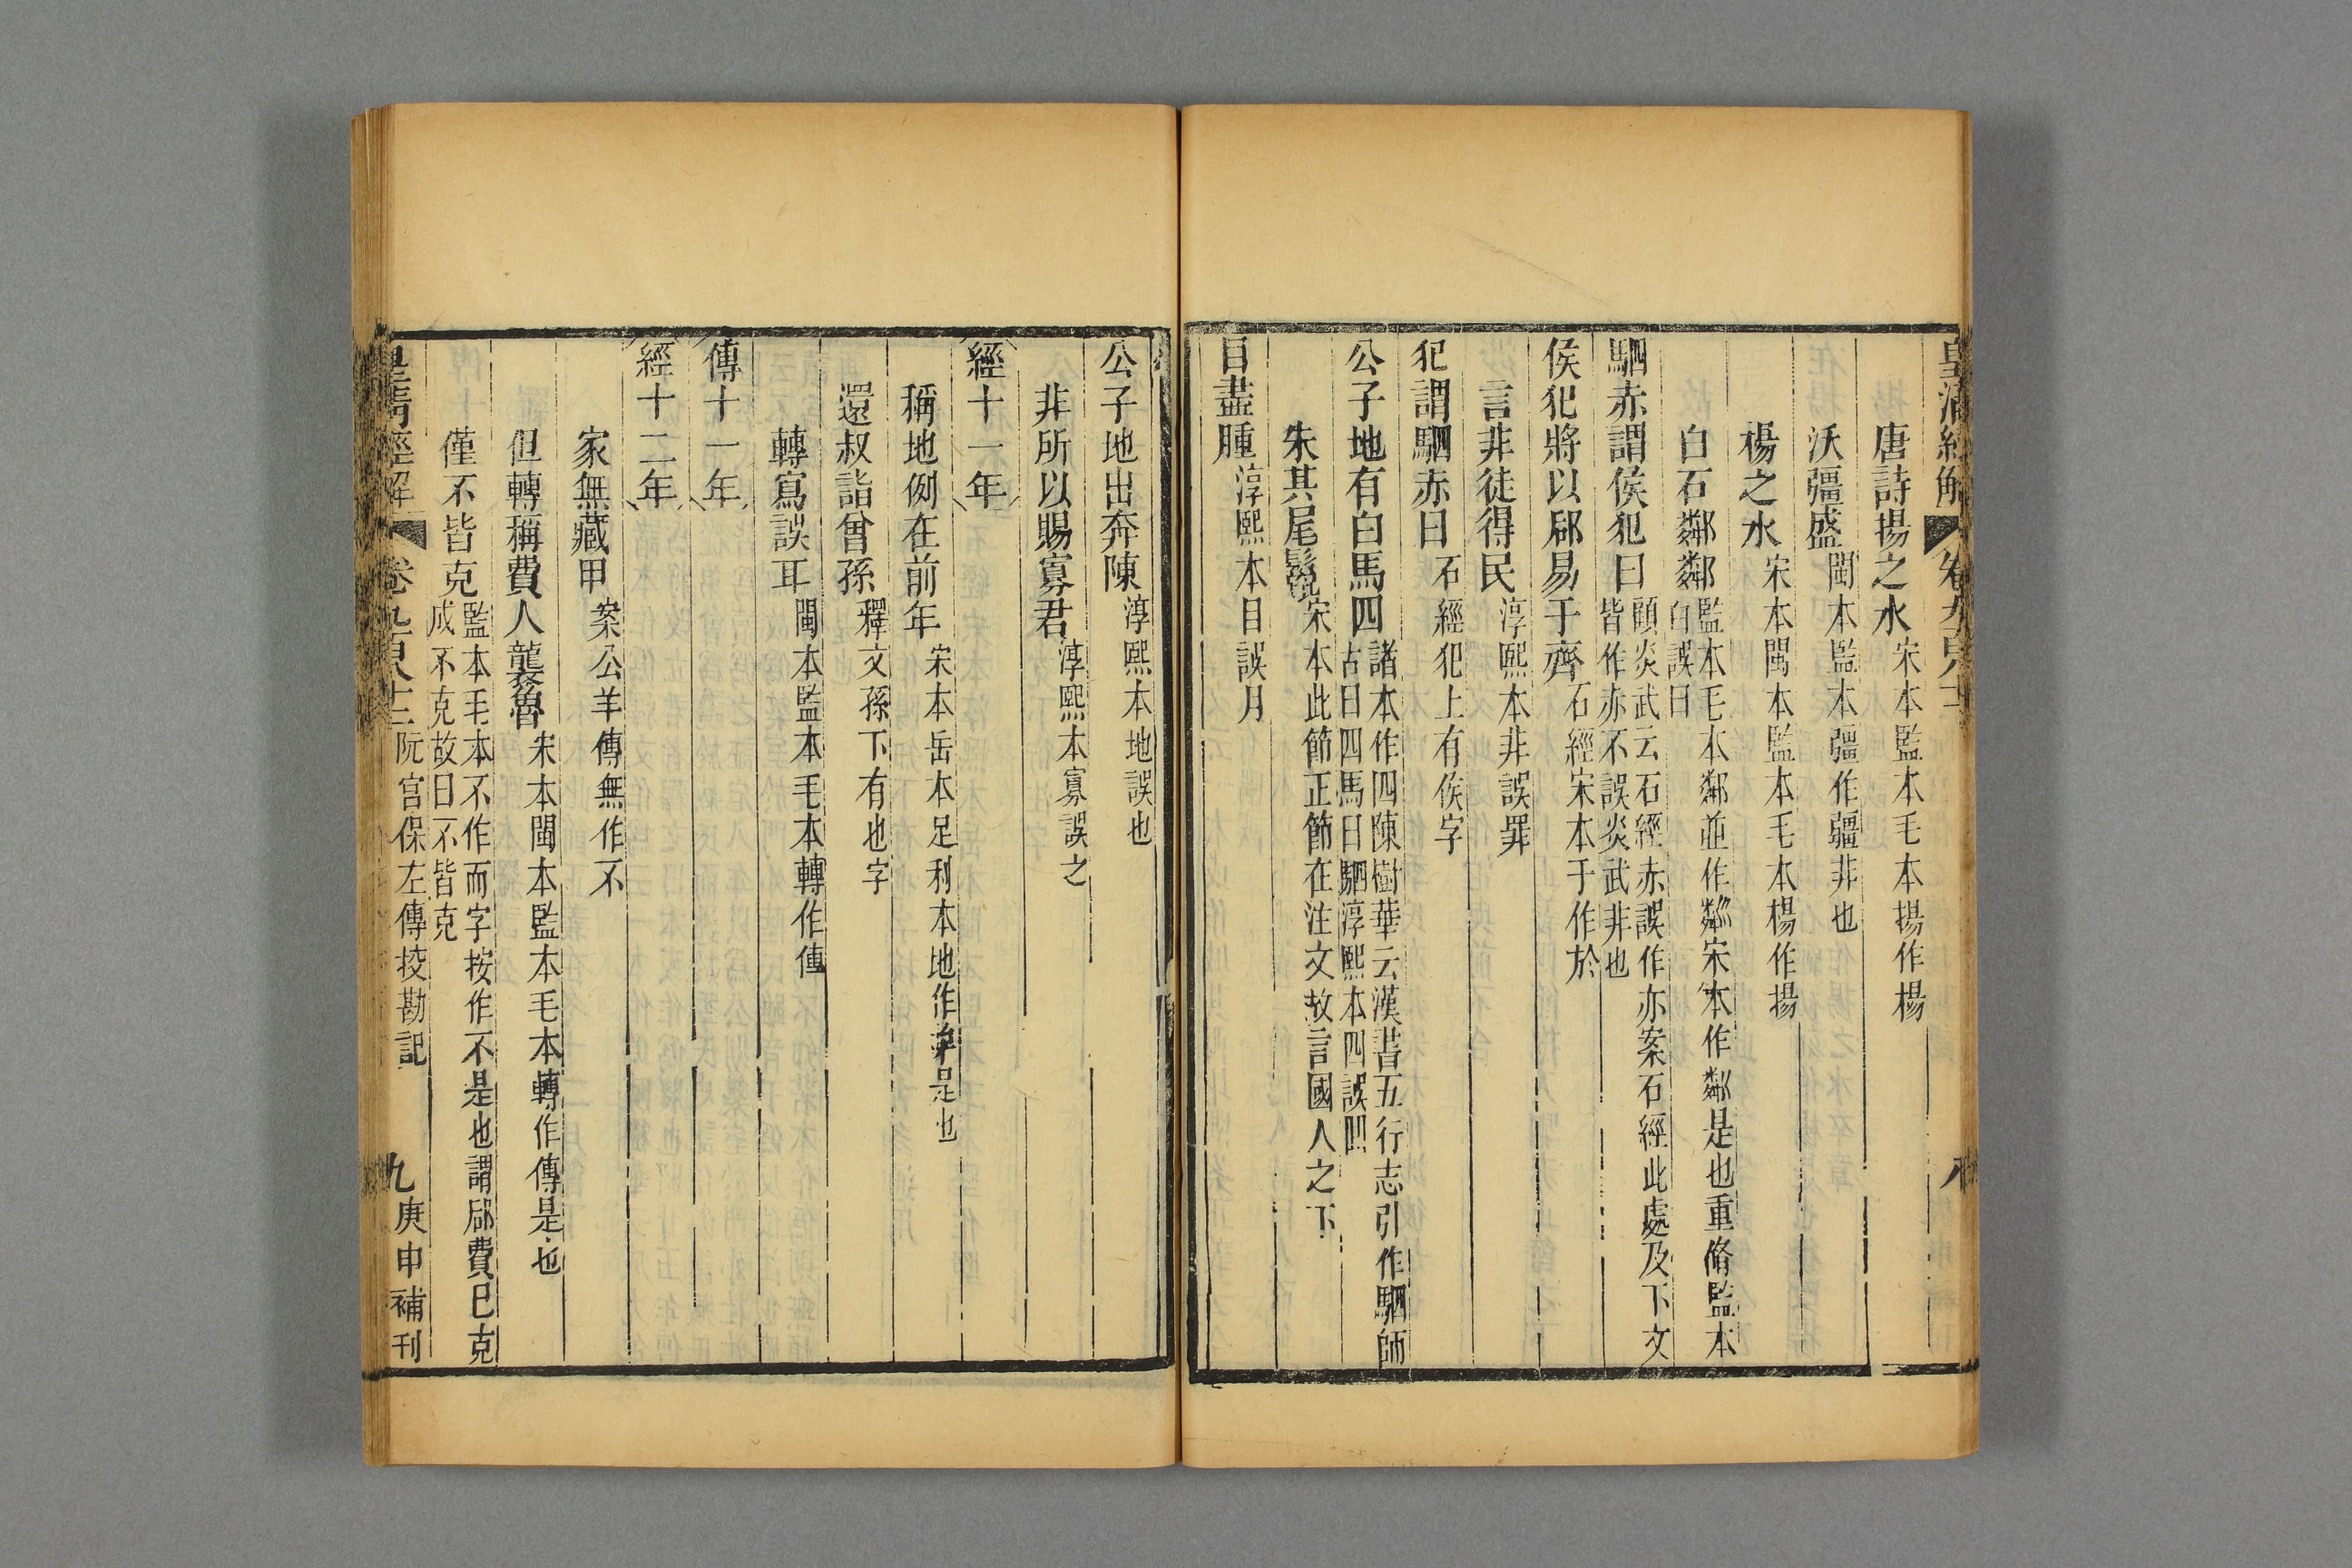 皇清經解 卷九百八十二 八
唐詩揚之水宋本監本毛本揚作楊
沃彊盛閩本監本彊作疆非也
楊之水宋本閩本監本毛本楊作揚
白石鄰鄰監本毛本鄰並作粼宋本作鄰是也重脩監本白誤曰
駟赤謂侯犯曰顧炎武云石經赤誤作亦案石經此處及下文皆作赤不誤炎武非也
侯犯將以郈易于齊石經宋本于作於
言非徒得民淳熙本非誤罪
犯謂駟赤曰石經犯上有侯字
公子地有白馬四諸本作四陳樹華云漢書五行志引作駟師古曰四馬曰駟淳熙本四誤㗊
朱其尾鬣宋本此節正節在注文故言國人之下
目盡腫淳熙本目誤月
公子地出奔陳淳熙本地誤也
非所以賜寡君淳熙本寡誤之
經十一年
稱地例在前年宋本岳本足利本地作弟是也
還叔詣曾孫釋文孫下有也字
轉寫誤耳閩本監本毛本轉作傳
傳十一年
經十二年
家無藏甲案公羊傳無作不
但轉稱費人襲魯宋本閩本監本毛本轉作傳是也
僅不皆克監本毛本不作而字按作不是也謂郈費已克成不克故曰不皆克
皇清經解 卷九百八十二 阮宮保左傳挍勘記 九 庚申補刊